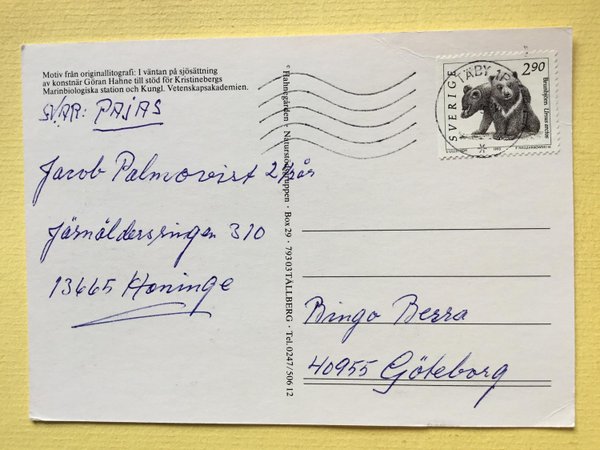 Motiv från originallitografi: I väntan på sjösättning
av konstnär Göran Hahne till stöd för Kristinebergs
Marinbiologiska station och Kungl. Vetenskapsakademien.
SVAR: PAJAS
Jacob Palmqvist 2 1/2 år
Järnåldersringen 310
13665 Haninge
© Hahnegården · Naturstödsgruppen · Box 29 · 793 03 TÄLLBERG · Tel. 0247/506 12
SVERIGE
2.90
Brunbjörn Ursus arctos
TÄBY 1
Bingo Berra
40955 Göteborg